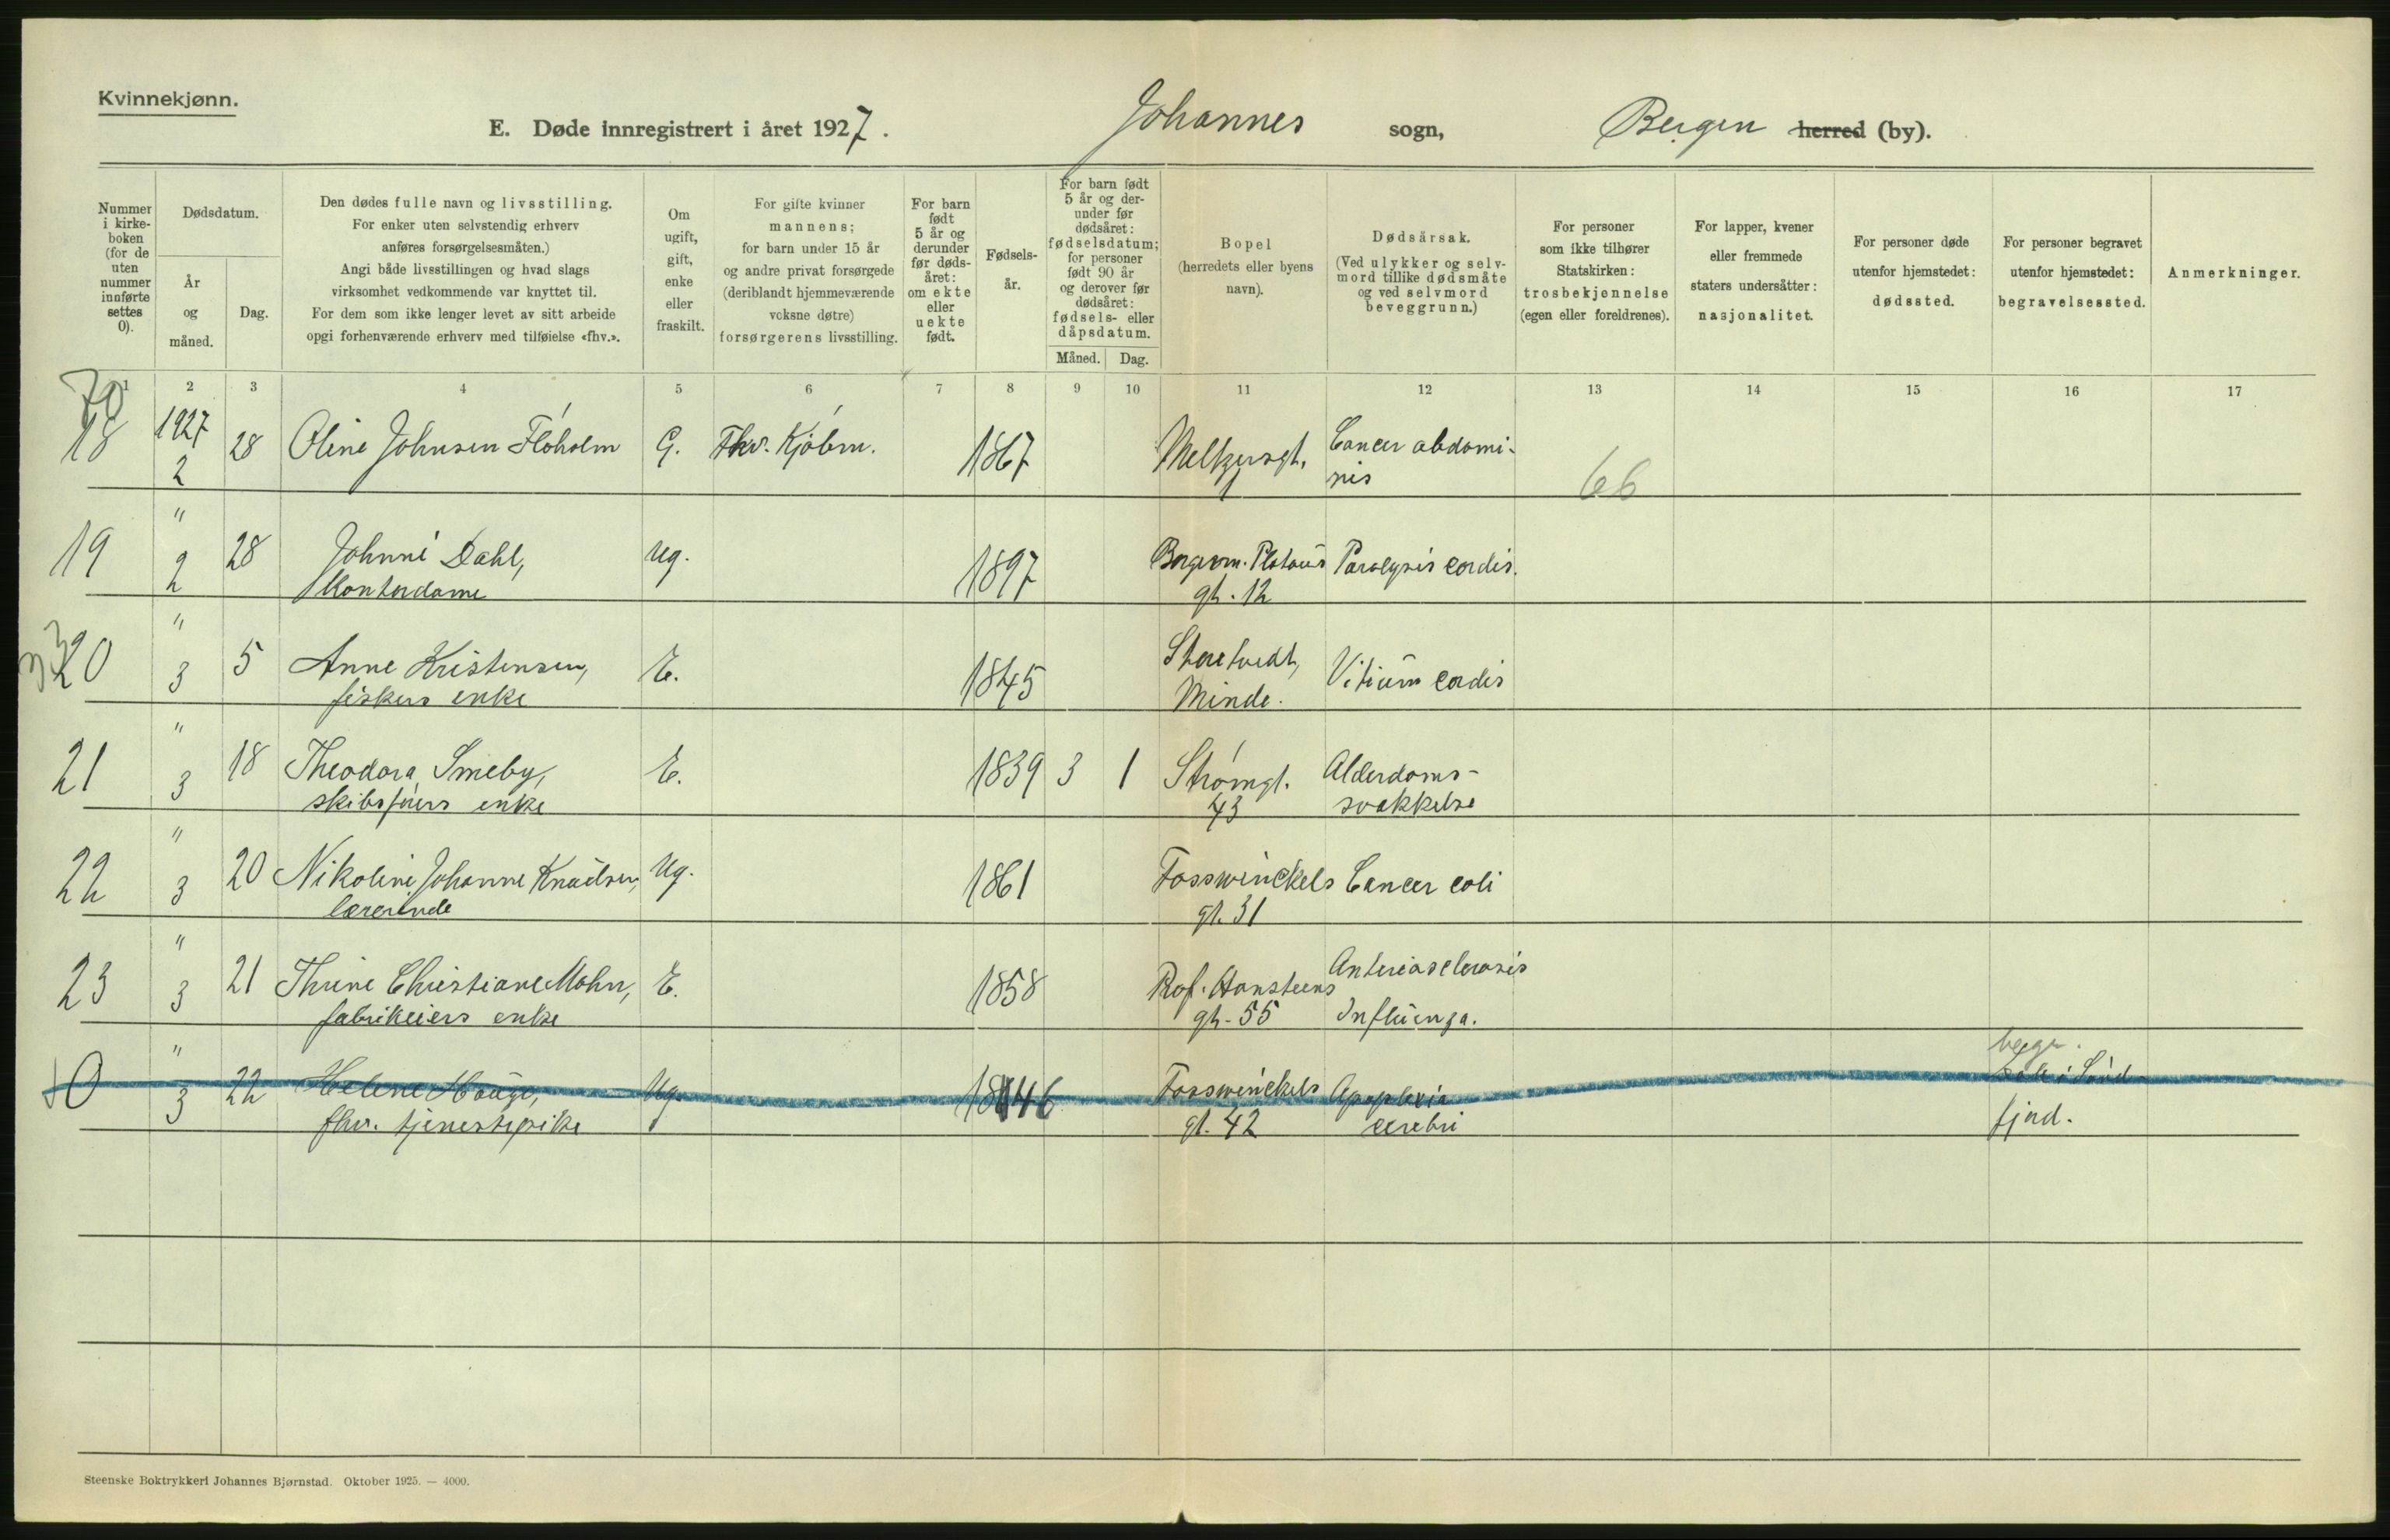 Kvinnekjønn.
E. Døde innregistrert i året 1927. Johannes sogn, Bergen herred (by).
Nummer i kirke- boken (for de uten nummer innførte settes 0).
Dødsdatum.
År og måned.
Dag.
Den dødes fulle navn og livsstilling.
For enker uten selvstendig erhverv
anføres forsørgelsesmåten.)
Angi både livsstillingen og hvad slags
virksomhet vedkommende var knyttet til.
For dem som ikke lenger levet av sitt arbeide
opgi forhenværende erhverv med tilføielse «fhv.».
Om ugift, gift, enke eller fraskilt.
For gifte kvinner
mannens;
for barn under 15 år
og andre privat forsørgede
(deriblandt hjemmeværende
voksne døtre)
forsørgerens livsstilling.
For barn født 5 år og derunder før døds- året: om ekte eller uekte født.
Fødsels- år.
For barn født
5 år og der-
under før
dødsåret:
fødselsdatum;
for personer
født 90 år
og derover før
dødsåret:
fødsels- eller
dåpsdatum.
Måned. Dag.
Bopel
(herredets eller byens
navn).
Dødsårsak.
(Ved ulykker og selv-
mord tillike dødsmåte
og ved selvmord
beveggrunn.)
For personer
som ikke tilhører
Statskirken:
trosbekjønnelse
(egen eller foreldrenes).
For lapper, kvener
eller fremmede
staters undersåtter:
nasjonalitet.
For personer døde
utenfor hjemstedet:
dødssted.
For personer begravet
utenfor hjemstedet:
begravelsessted.
Anmerkninger.
1 2 3 4 5 6 7 8 9 10 11 12 13 14 15 16 17
70
18 1927 2 28 Oline Johnsen Floholm G. Fhv. Kjøbm. 1867 Meltzersgt. 1 Cancer abdomi-
nis 66
19 " 2 28 Johnni Dahl, Ug. 1897 Borgerm. Platous Paralysis cordis.
Kontordame gt. 12
20 " 3 5 Anne Kristensen, E. 1845 Storetvedt, Vitium cordis
fiskers enke Minde.
21 " 3 18 Theodora Smeby, E. 1839 3 1 Strømgt. Alderdoms-
skibsførers enke 43 svakkelse
22 " 3 20 Nikoline Johanne Knudsen, Ug. 1861 Fosswinckels Cancer coli
lærerinde gt. 31
23 " 3 21 Thrine Christiane Mohn, E. 1858 Prof. Hansteens Arteriosclerosis
fabrikeiers enke gt. 55 Influenza.
0 " 3 22 Helene Hauge, Ug. 1846 Fosswinckels Apoplexia
fhv. tjenestepike gt. 42 cerebri fjord.
Steenske Boktrykkeri Johannes Bjørnstad. Oktober 1925. — 4000.